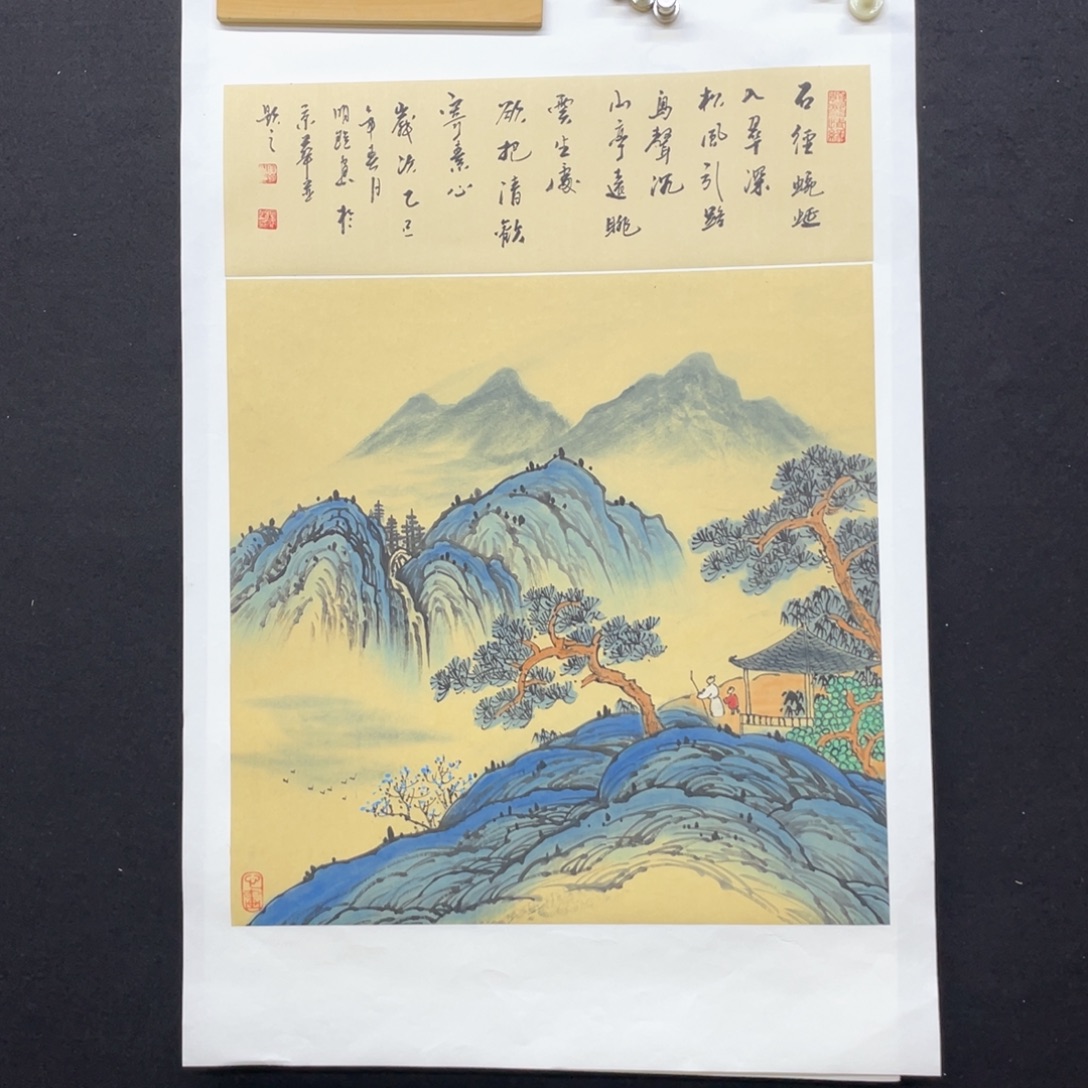 石徑蜿蜒
入翠深
松風引路
鳥聲沉
山亭遠眺
雲生處
欲把清歡
寄素心
歲次乙巳
年春月
明 於
京華並
題之